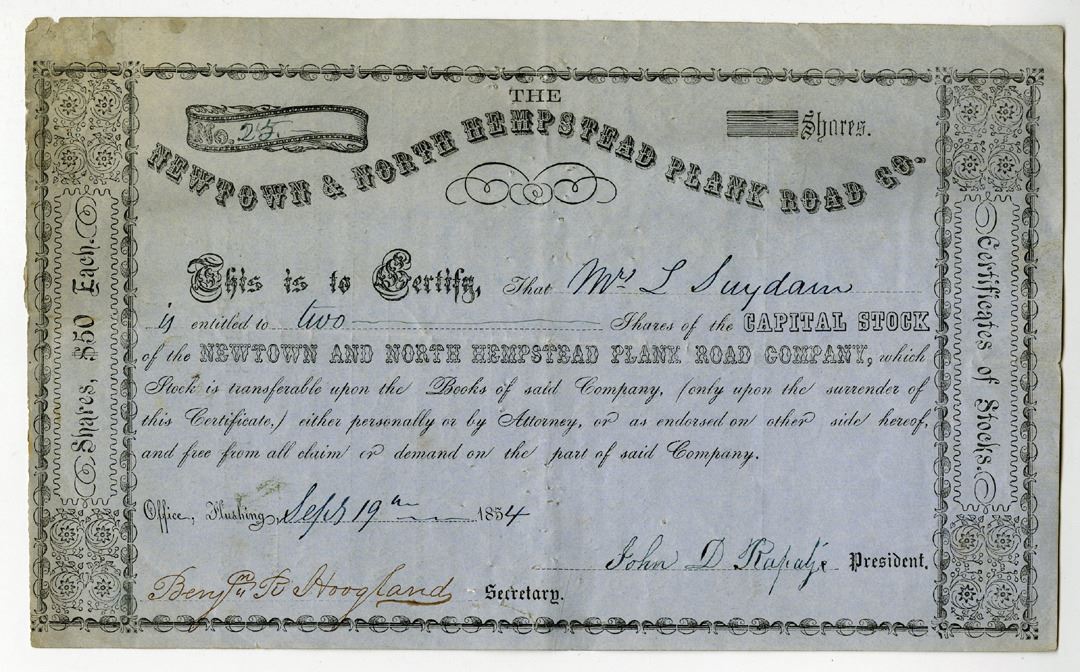 THE
No. 25
Shares.
NEWTOWN & NORTH HEMPSTEAD PLANK ROAD CO.
This is to Certify, That Mr L Suydam
is entitled to two Shares of the CAPITAL STOCK
of the NEWTOWN AND NORTH HEMPSTEAD PLANK ROAD COMPANY, which
Stock is transferable upon the Books of said Company, (only upon the surrender of
this Certificate,) either personally or by Attorney, or as endorsed on other side hereof,
and free from all claim or demand on the part of said Company.
Office, Flushing, Sept 19th 1854
John D Rapalje President,
Benjmn R Hoogland Secretary.
Shares, $50 Each.
Certificate of Stocks.